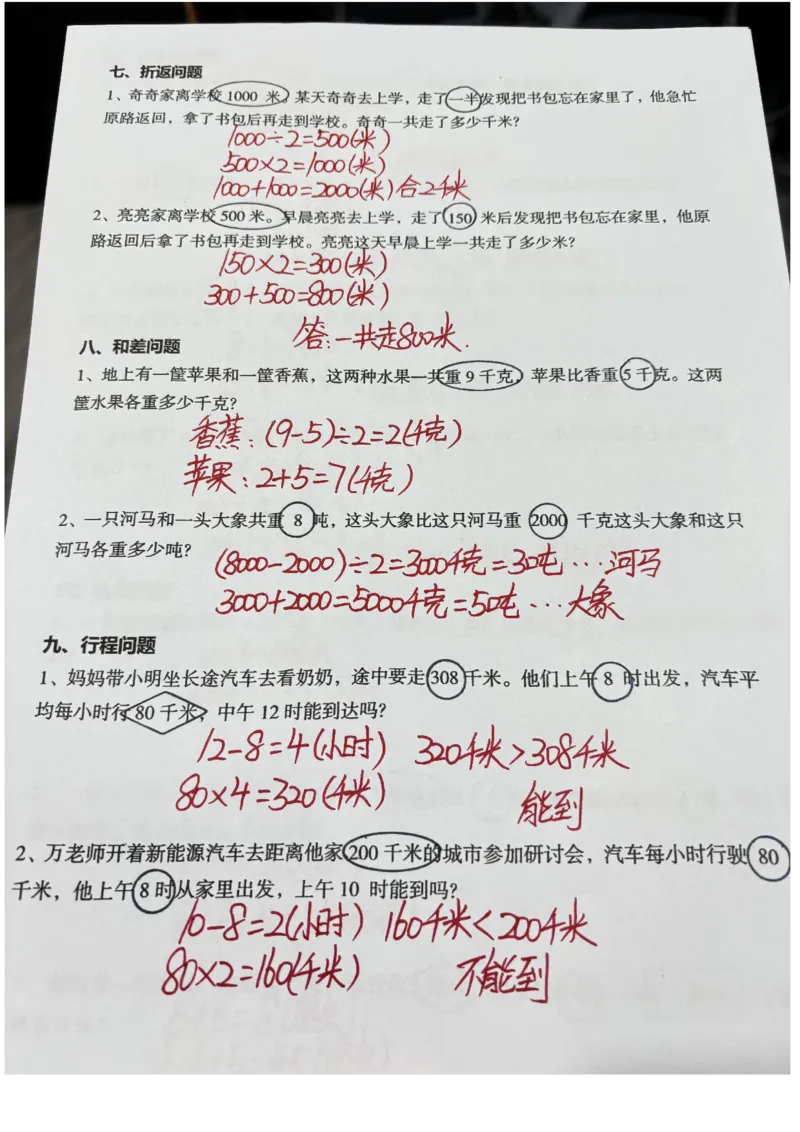 七、折返问题
1、奇奇家离学校 1000 米。某天奇奇去上学，走了一半发现把书包忘在家里了，他急忙
原路返回，拿了书包后再走到学校。奇奇一共走了多少千米?
1000÷2=500(米)
500×2=1000(米)
1000+1000=2000(米)合2千米
2、亮亮家离学校 500 米。早晨亮亮去上学，走了 150 米后发现把书包忘在家里，他原
路返回后拿了书包再走到学校。亮亮这天早晨上学一共走了多少米?
150×2=300(米)
300+500=800(米)
答:一共走800米.
八、和差问题
1、地上有一筐苹果和一筐香蕉，这两种水果一共重 9 千克，苹果比香重 5 千克。这两
筐水果各重多少千克?
香蕉:(9-5)÷2=2(千克)
苹果:2+5=7(千克)
2、一只河马和一头大象共重 8 吨，这头大象比这只河马重 2000 千克这头大象和这只
河马各重多少吨?
(8000-2000)÷2=3000千克=3吨…河马
3000+2000=5000千克=5吨…大象
九、行程问题
1、妈妈带小明坐长途汽车去看奶奶，途中要走 308 千米。他们上午 8 时出发，汽车平
均每小时行 80 千米，中午 12 时能到达吗?
12-8=4(小时) 320千米>308千米
80×4=320(千米) 能到
2、万老师开着新能源汽车去距离他家 200 千米的城市参加研讨会，汽车每小时行驶 80
千米，他上午 8 时从家里出发，上午 10 时能到吗?
10-8=2(小时) 160千米<200千米
80×2=160(千米) 不能到